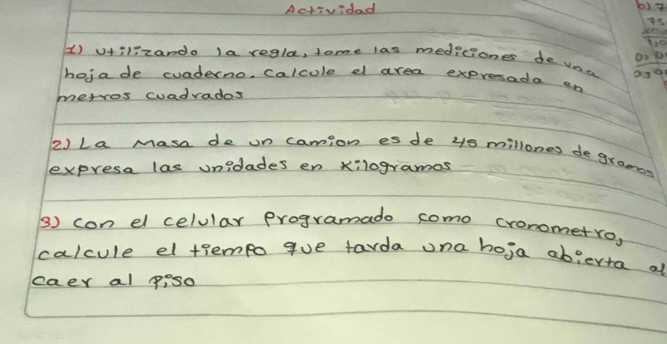 Actividad
b) 7
1) utilizando la regla, tome las mediciones de una
hoja de cuaderno. calcule el area expresada en
metros cuadrados
2) La Masa de un camion es de 45 millones de gramos
expresa las unidades en Kilogramos
3) con el celular Programado como cronometro,
calcule el tiempo que tarda una hoja abierta al
caer al piso